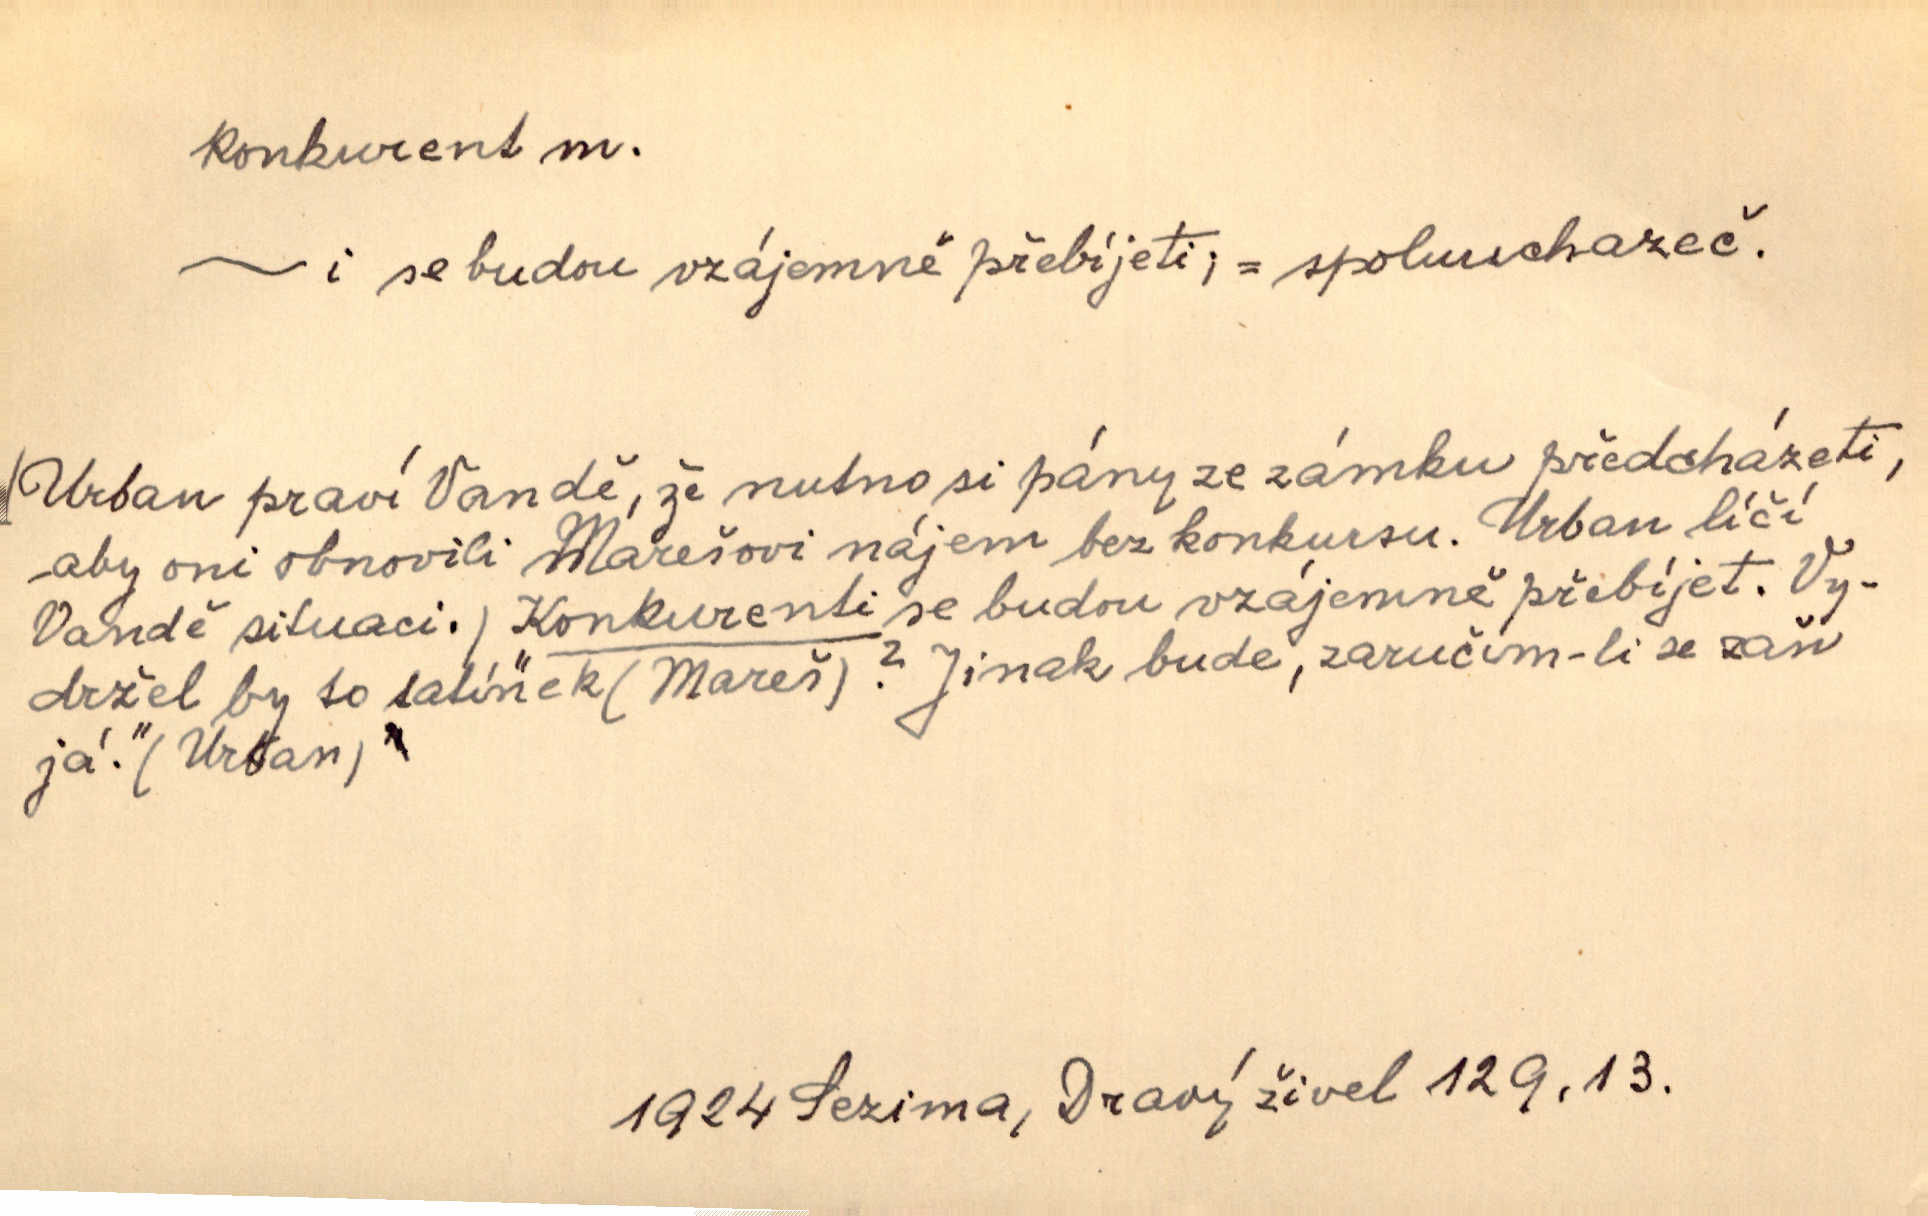 konkurent m.
~i se budou vzájemně přebíjeti; = spoluuchazeč.
(Urban praví Vandě, že nutno si pány ze zámku předcházeti,
aby oni obnovili Marešovi nájem bez konkursu. Urban líčí
Vandě situaci.) Konkurenti se budou vzájemně přebíjet. Vy-
držel by to tatín"ek (Mareš)? Jinak bude, zaručím-li se zaň
já." (Urban)"
1924 Sezima, Dravý živel 129, 13.